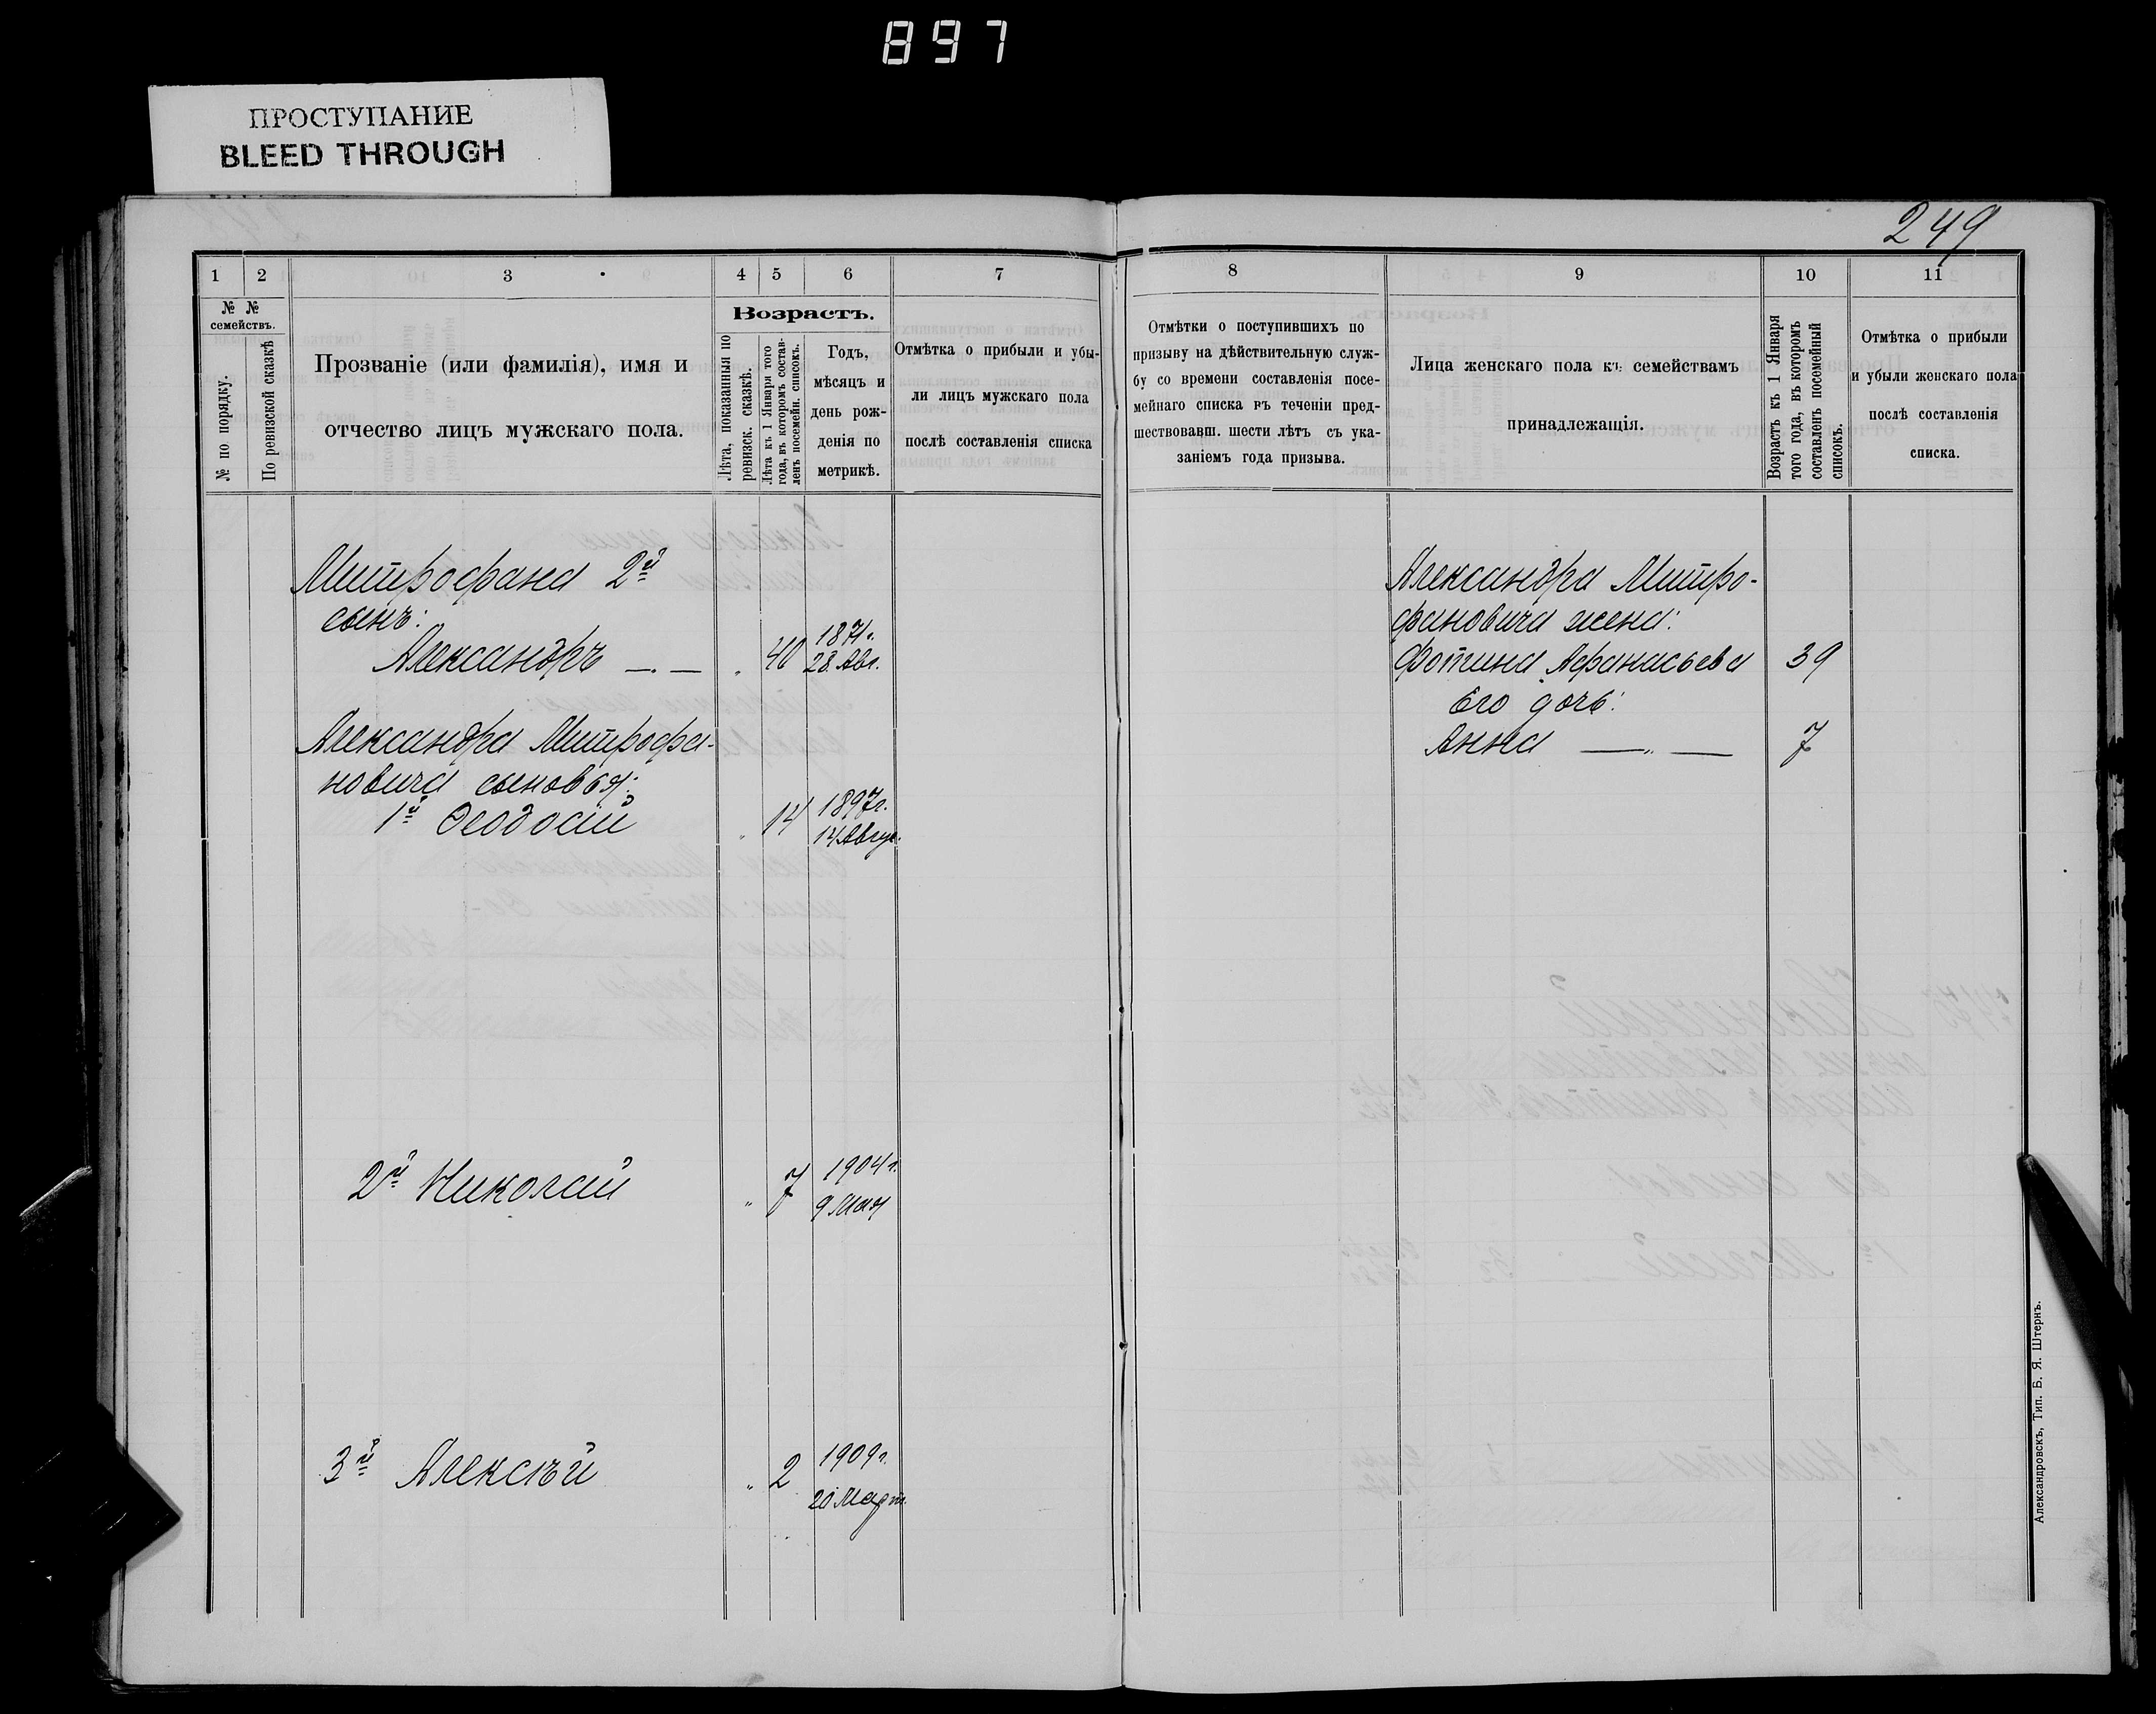 897
ПРОСТУПАНИЕ
BLEED THROUGH
249
1 2 3 4 5 6 7 8 9 10 11
№ № семействъ.
№ по порядку.
По ревизской сказкѣ
Прозваніе (или фамилія), имя и
отчество лицъ мужскаго пола.
Возрастъ.
Лѣта, показанныя по
ревизск. сказкѣ.
Лѣта къ 1 Января того
года, въ которомъ состав-
ленъ посемейн. списокъ.
Годъ,
мѣсяцъ и
день рож-
денія по
метрикѣ.
Отмѣтка о прибыли и убы-
ли лицъ мужскаго пола
послѣ составленія списка
Отмѣтки о поступившихъ по
призыву на дѣйствительную служ-
бу со времени составленія посе-
мейнаго списка въ теченіи пред-
шествовавш. шести лѣтъ съ ука-
заніемъ года призыва.
Лица женскаго пола къ семействамъ
принадлежащія.
Возрастъ къ 1 Января
того года, въ которомъ
составленъ посемейный
списокъ.
Отмѣтка о прибыли
и убыли женскаго пола
послѣ составленія
списка.
Митрофана 2й
сынъ:
Александръ —„— „ 40 1871г.
28 Авг.
Александра Митрофа-
новича сыновья:
1й Феодосій „ 14 1897г.
14 Авгус.
2й Николай „ 7 1904г.
9 Мая
3й Алексѣй „ 2 1909г.
20 Март.
Александра Митро-
фановича жена:
Фотина Афанасьева 39
Его дочь:
Анна —„— 7
Александровскъ, Тип. Б. Я. Штернъ.